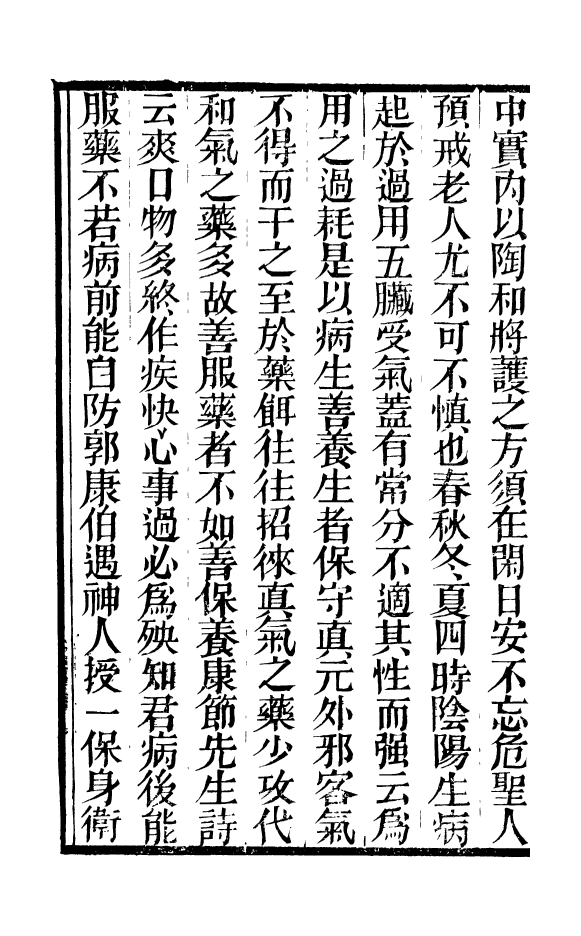 中實內以陶和將護之方須在閑日安不忘危聖人
預戒老人尤不可不慎也春秋冬夏四時陰陽生病
起於過用五臟受氣蓋有常分不適其性而强云爲
用之過耗是以病生善養生者保守真元外邪客氣
不得而干之至於藥餌往往招徠真氣之藥少攻伐
和氣之藥多故善服藥者不如善保養康節先生詩
云爽口物多終作疾快心事過必爲殃知君病後能
服藥不若病前能自防郭康伯遇神人授一保身衛